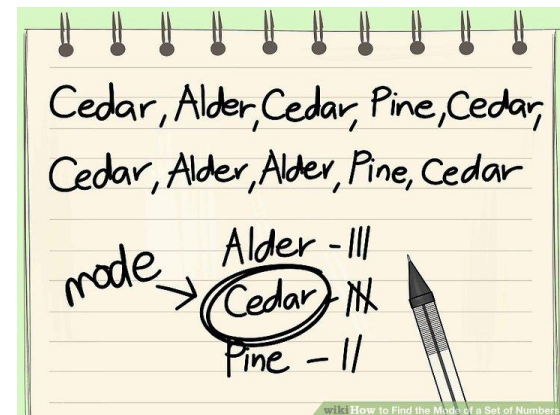 Cedar, Alder, Cedar, Pine, Cedar,
Cedar, Alder, Alder, Pine, Cedar
Alder - III
mode → Cedar - 𝍸
Pine - II
wikiHow to Find the Mode of a Set of Numbers